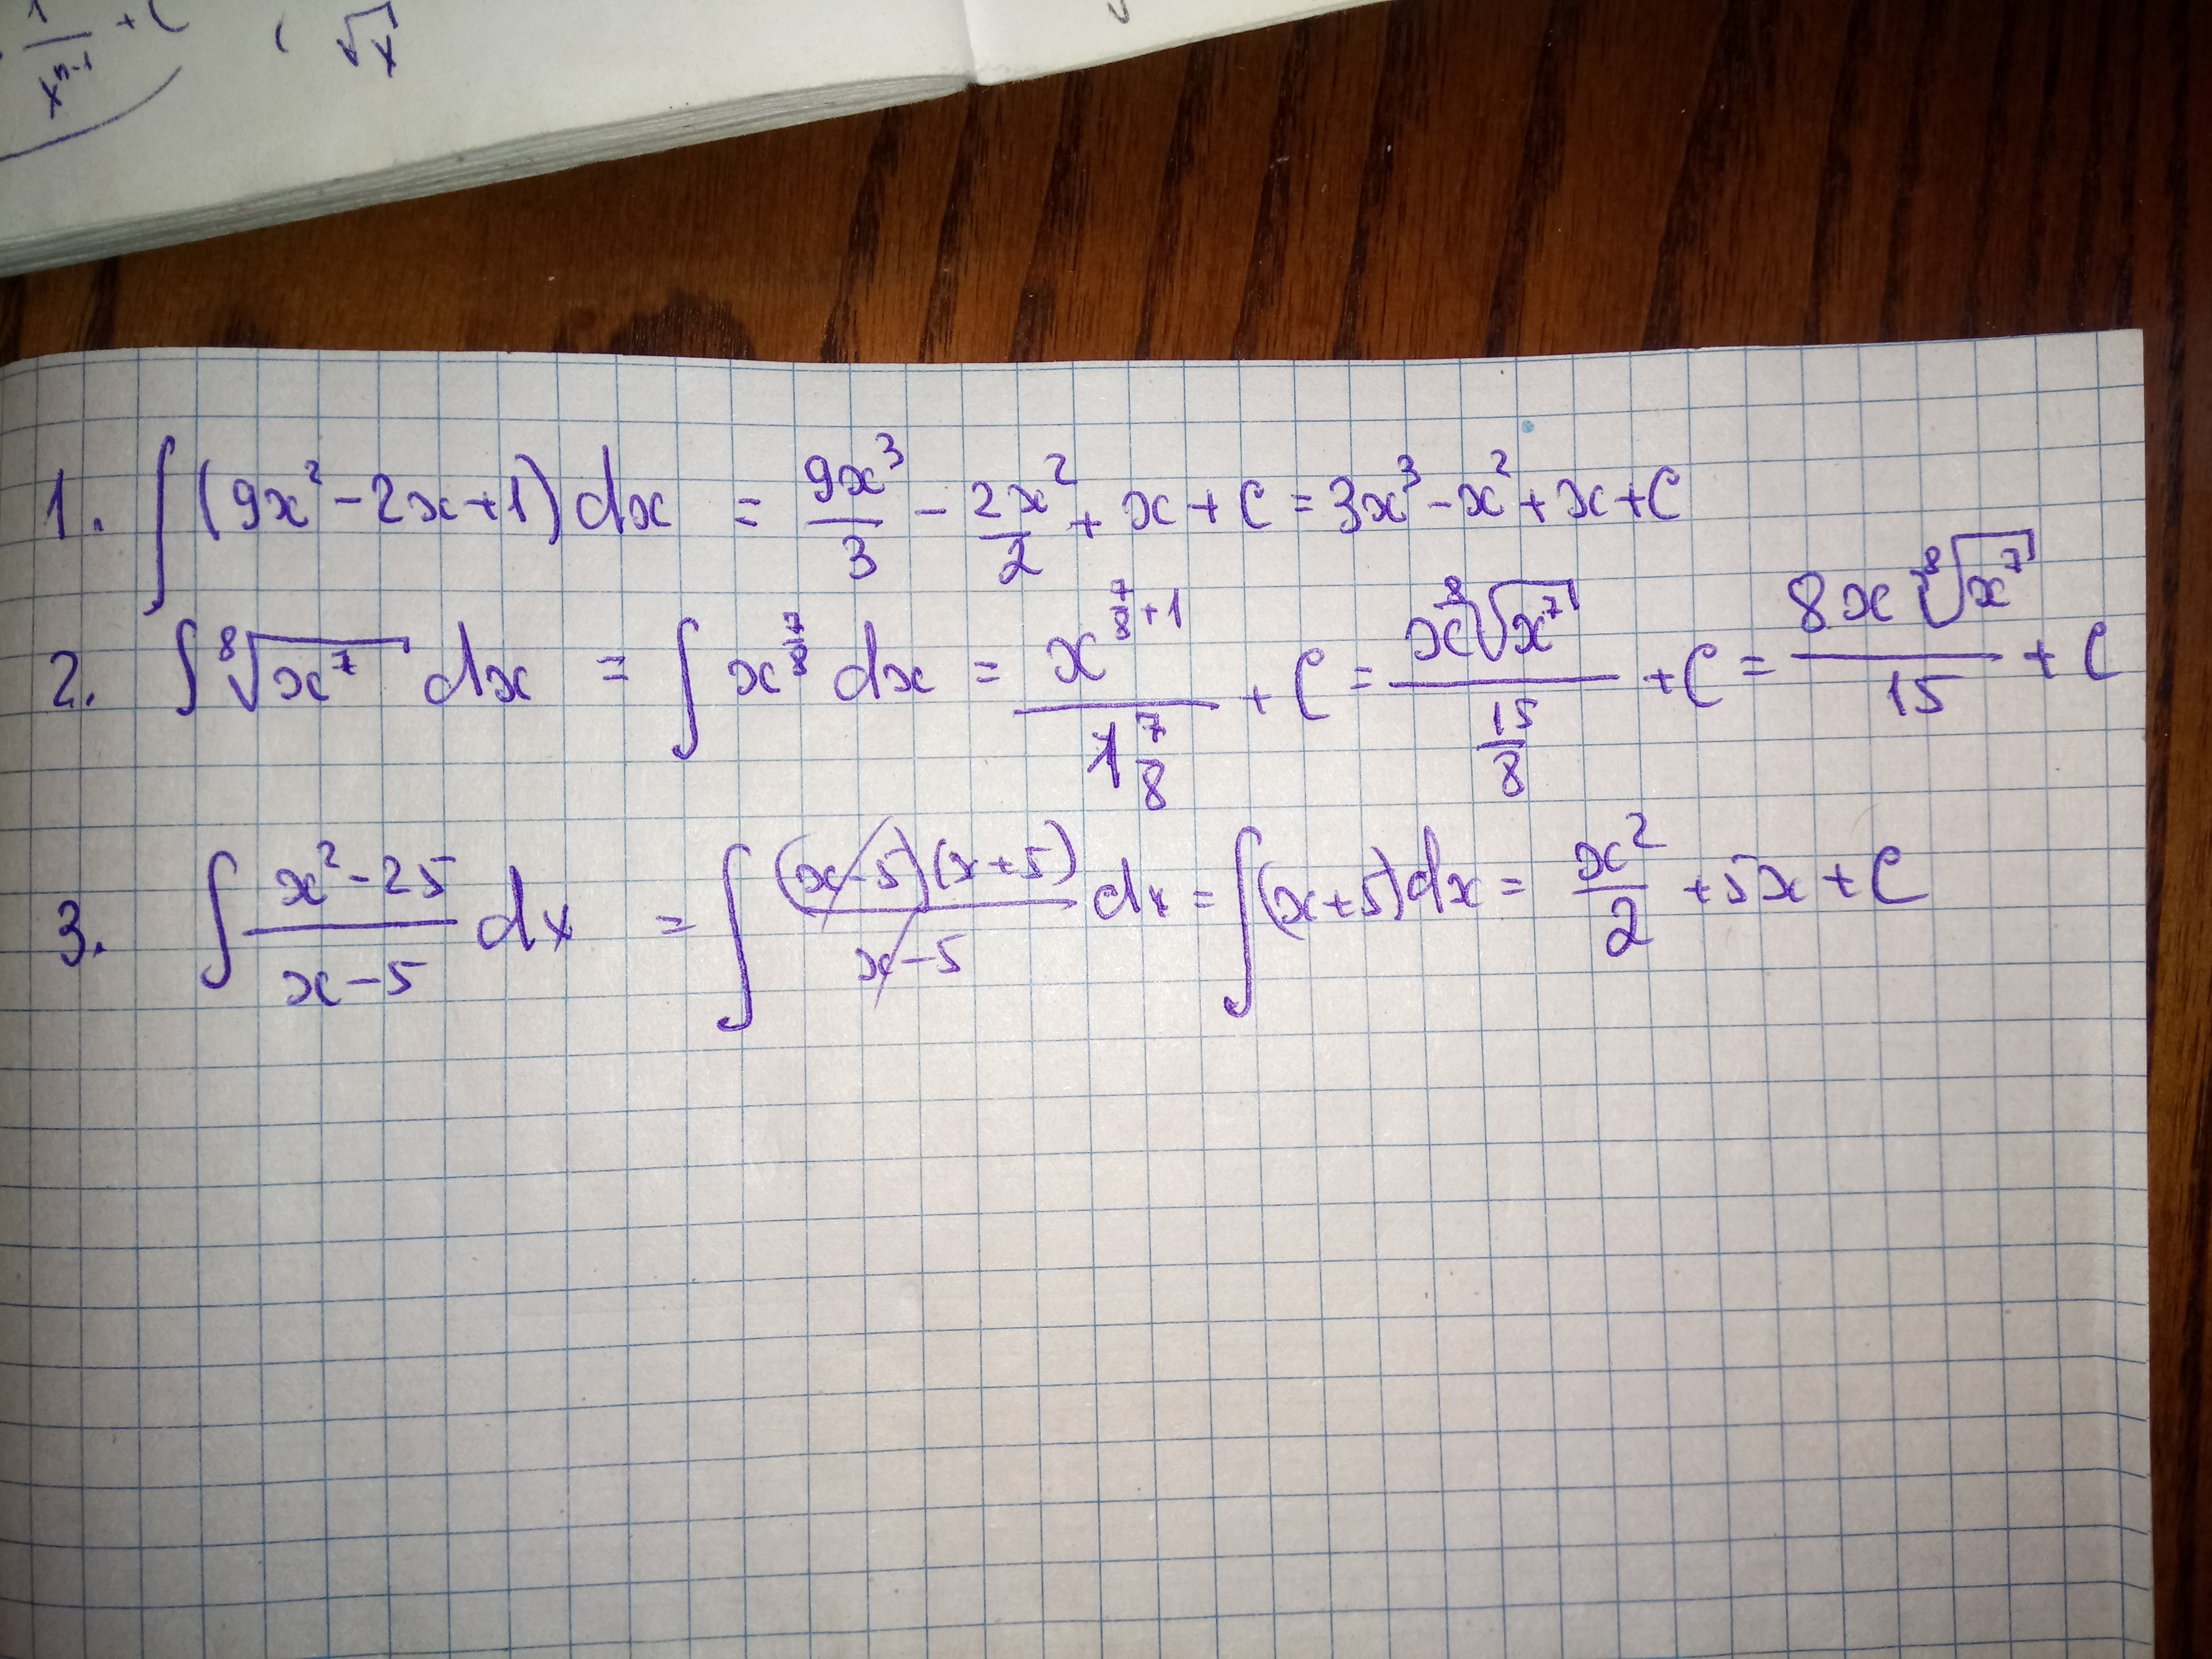 1/xⁿ⁻¹ + C ( √x
1. ∫(9x² - 2x + 1) dx = 9x³/3 - 2x²/2 + x + C = 3x³ - x² + x + C
2. ∫ ⁸√x⁷ dx = ∫ x^(7/8) dx = x^(7/8 + 1)/(1 7/8) + C = x ⁸√x⁷/(15/8) + C = 8x ⁸√x⁷/15 + C
3. ∫ (x² - 25)/(x - 5) dx = ∫ (x - 5)(x + 5)/(x - 5) dx = ∫(x + 5) dx = x²/2 + 5x + C